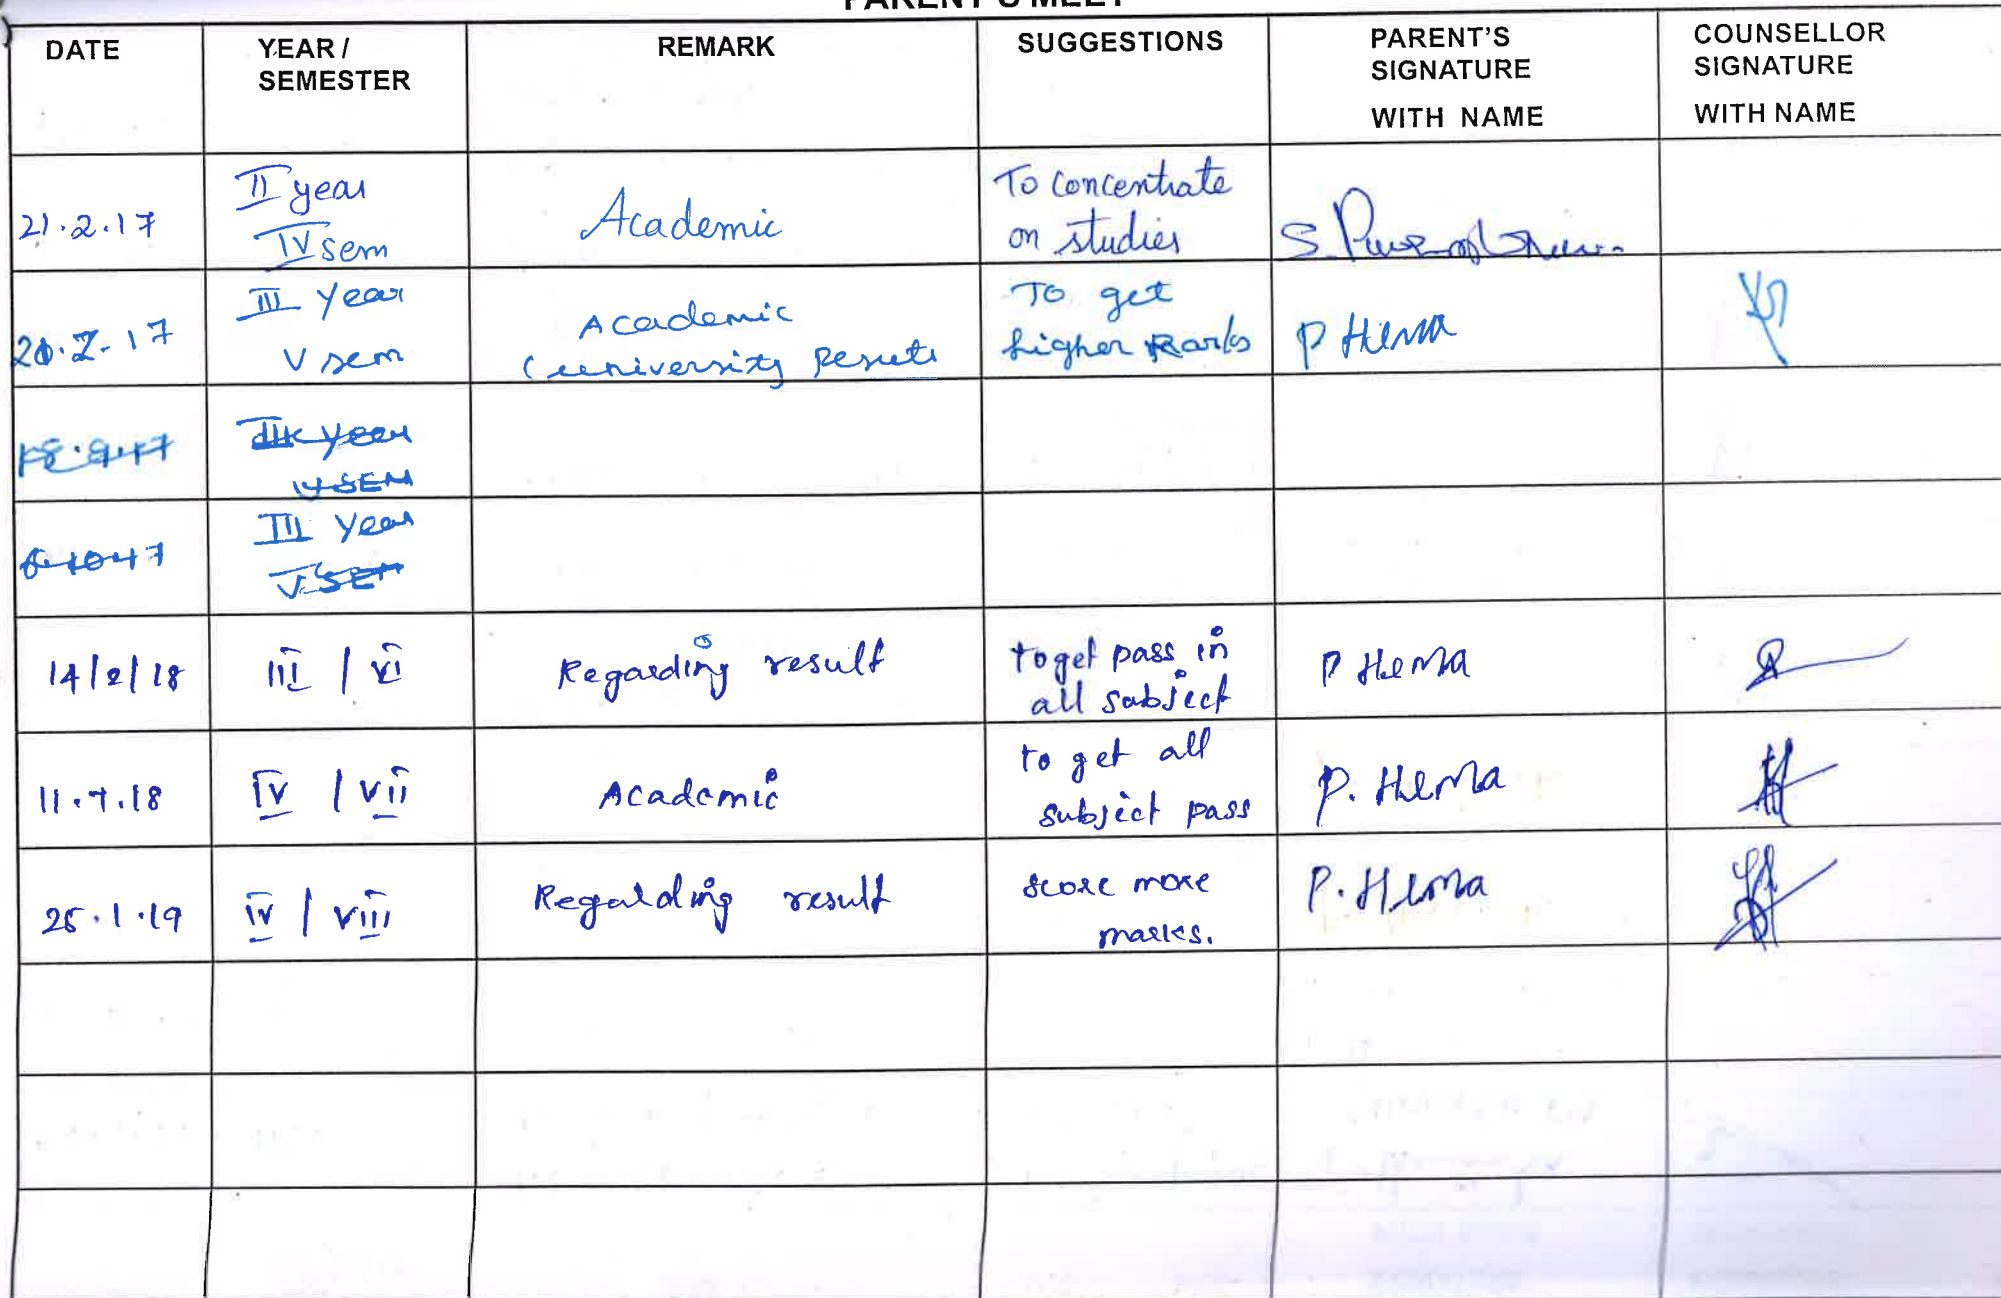 PARENT'S MEET
DATE
YEAR / SEMESTER
REMARK
SUGGESTIONS
PARENT'S SIGNATURE WITH NAME
COUNSELLOR SIGNATURE WITH NAME
21.2.17
II year
IV sem
Academic
To concentrate
on studies
III Year
V sem
Academic
(university Results
To get
higher Ranks
P Hema
III Year
V SEM
14/2/18
III / VI
Regarding result
to get pass in
all subject
P Hema
11.7.18
IV / VII
Academic
to get all
subject pass
P. Hema
25.1.19
IV / VIII
Regarding result
score more
marks.
P. Hema